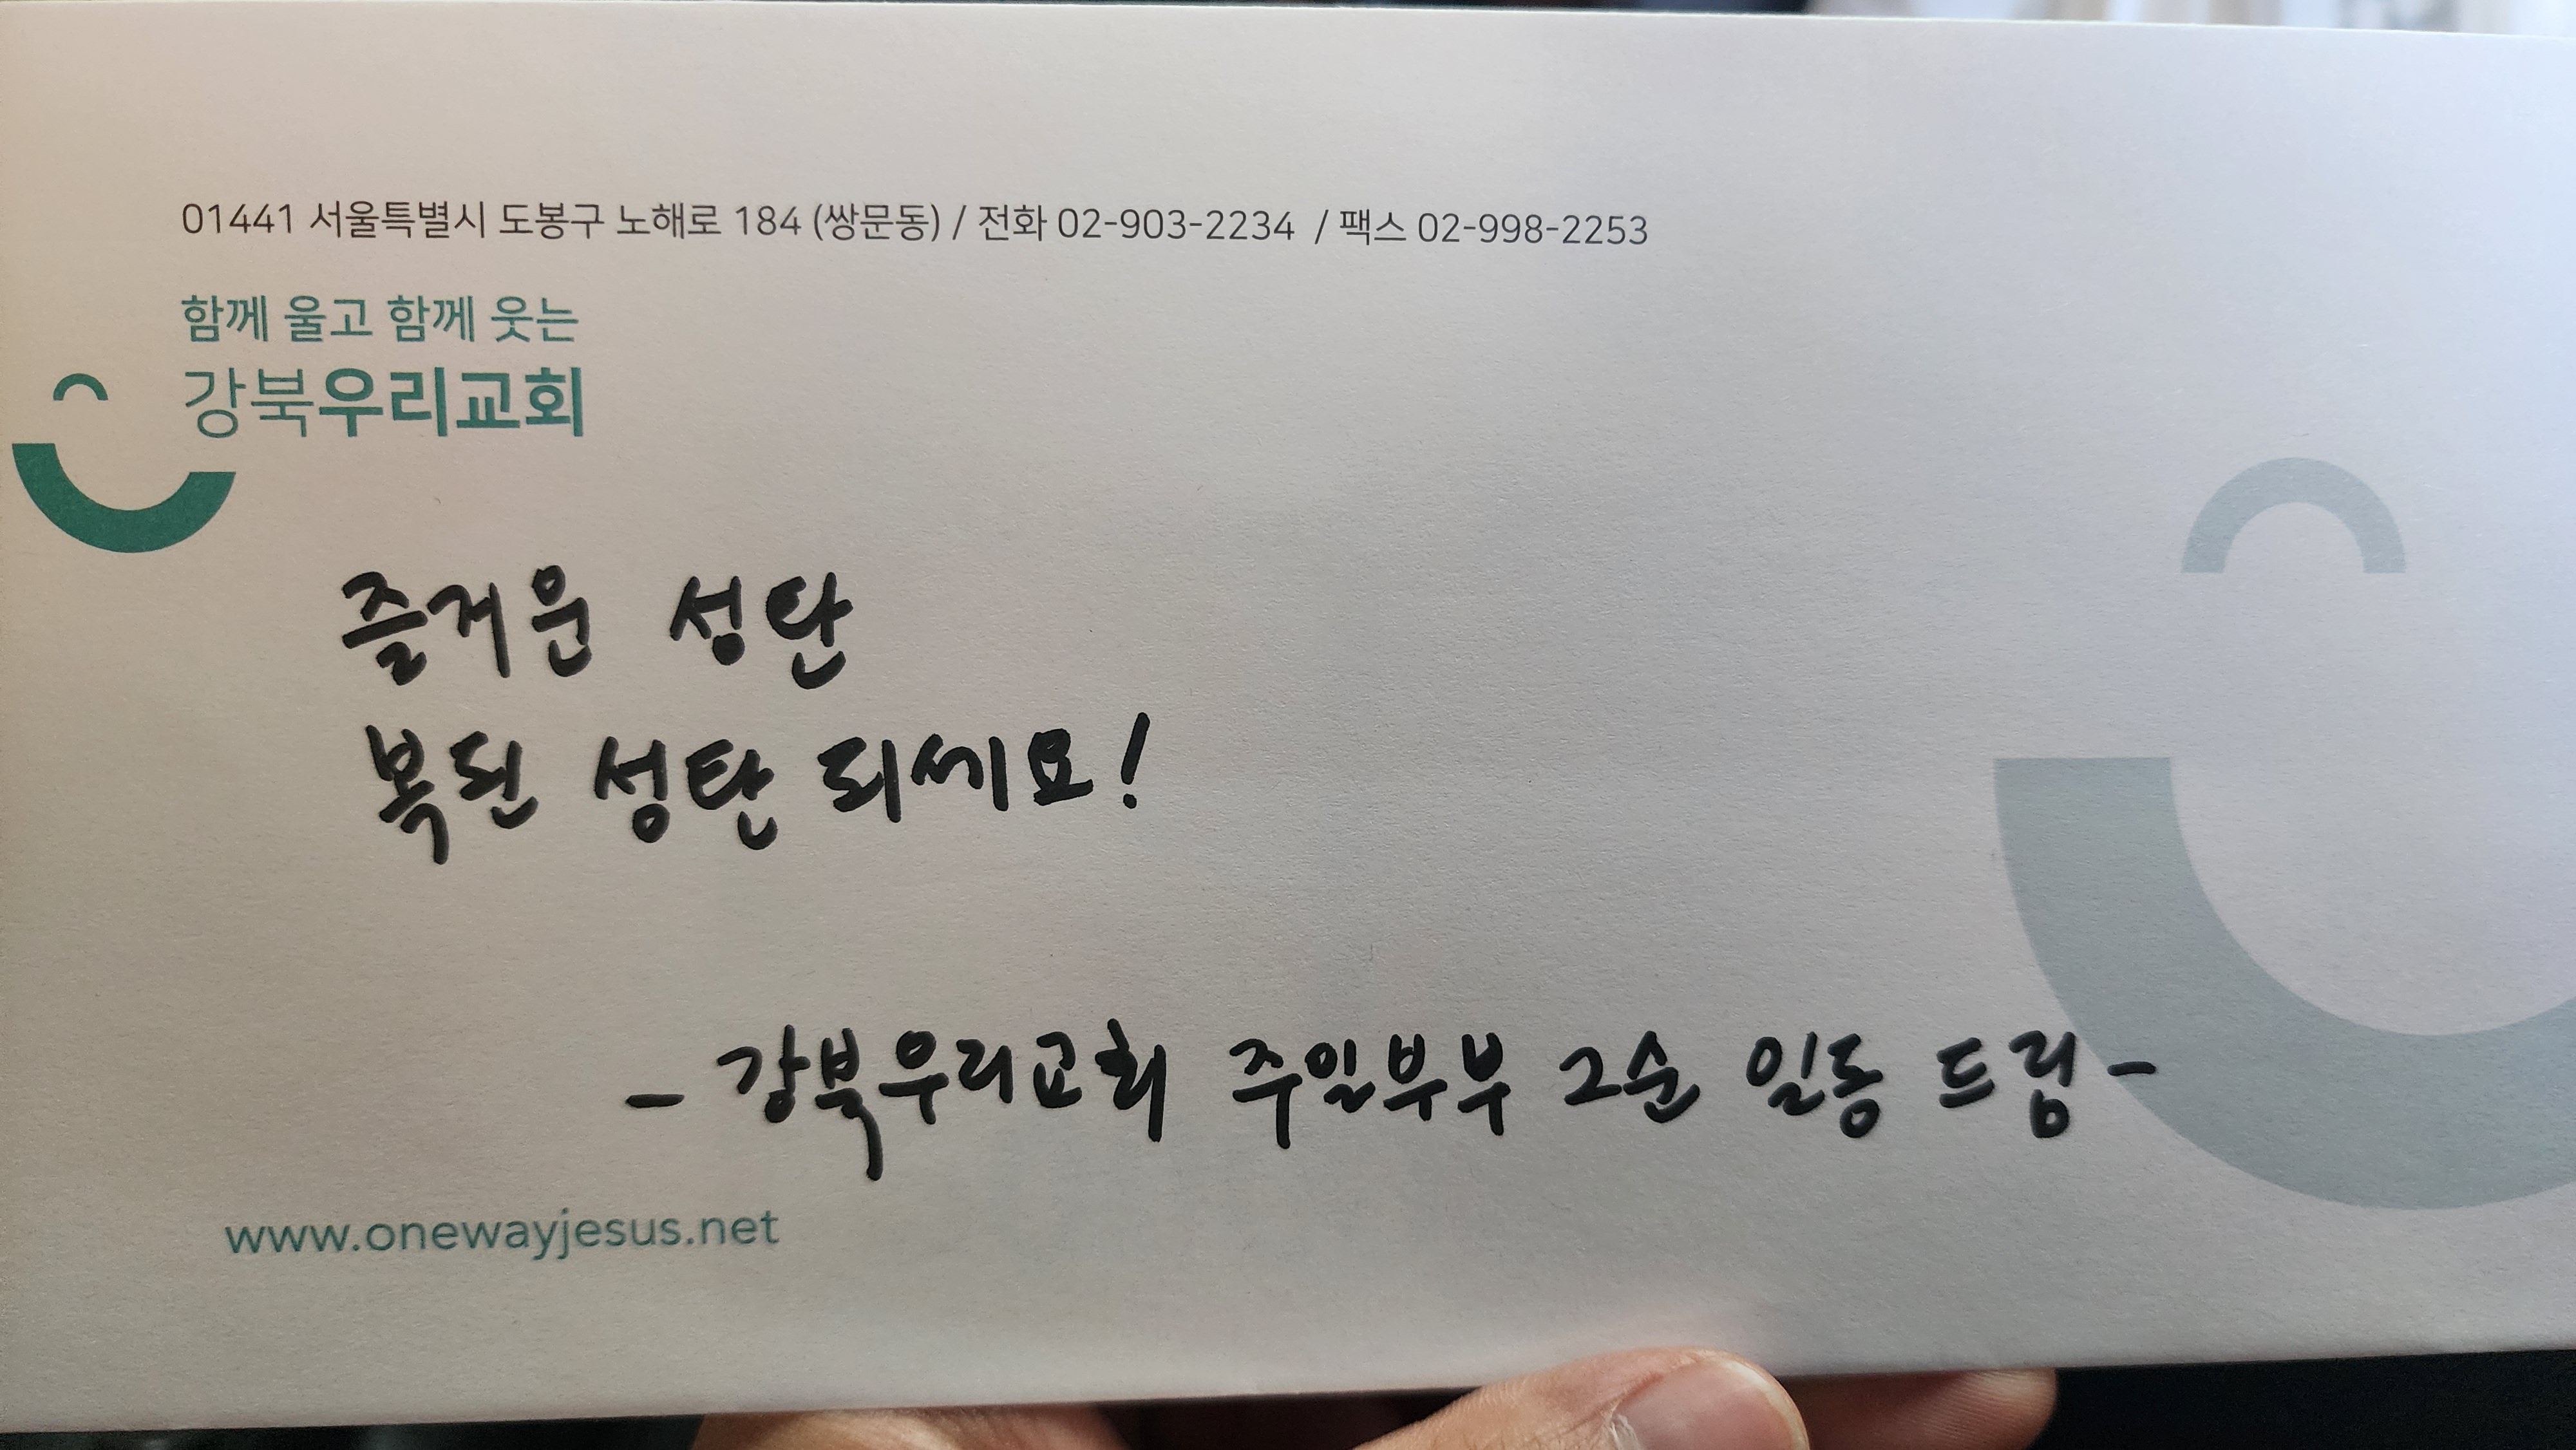 01441 서울특별시 도봉구 노해로 184 (쌍문동) / 전화 02-903-2234 / 팩스 02-998-2253
함께 울고 함께 웃는
강북우리교회
즐거운 성탄
복된 성탄 되세요!
- 강북우리교회 주일부부 2순 일동 드림 -
www.onewayjesus.net